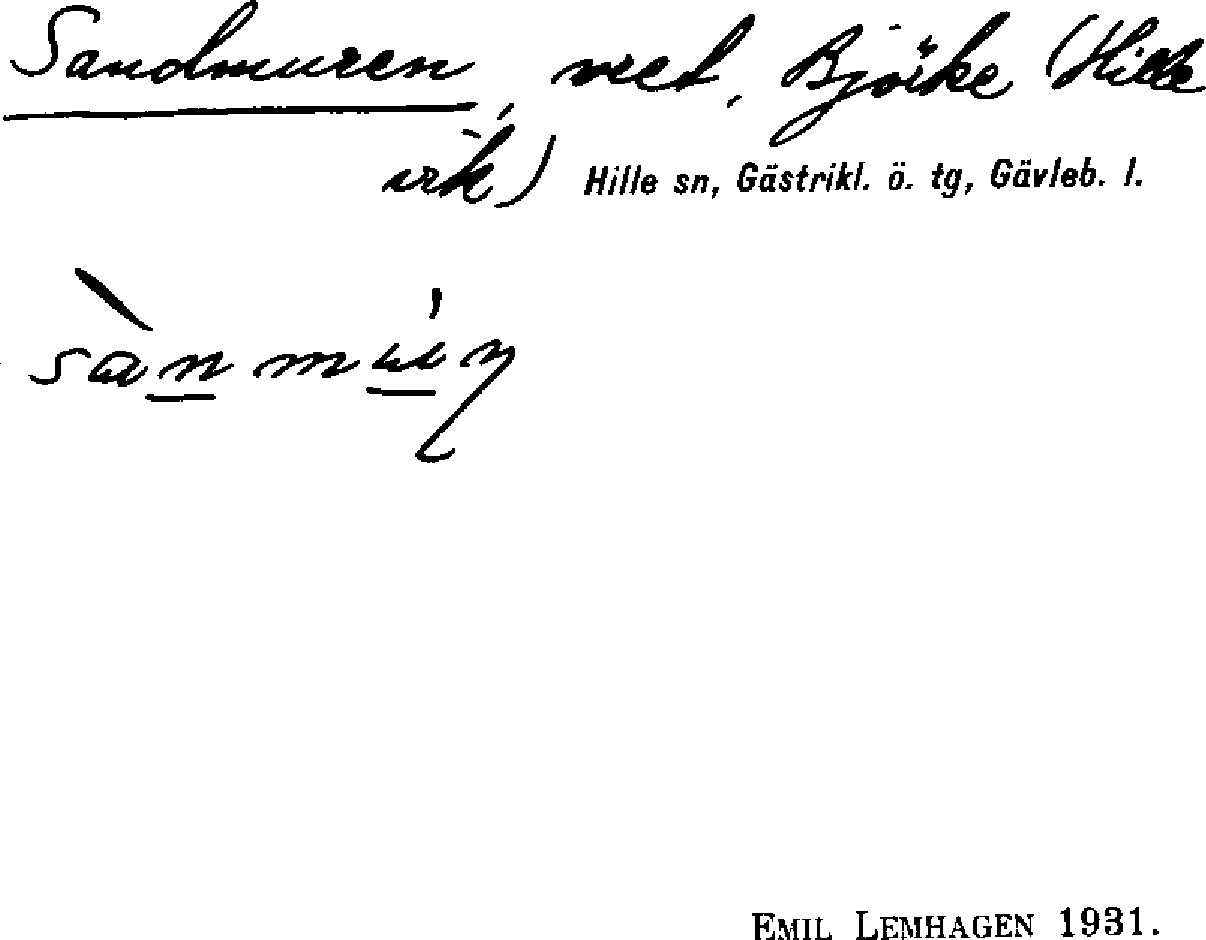 Sandmuren, vret, Björke (Hille
vik) Hille sn, Gästrikl. ö. tg, Gävleb. l.
EMIL LEMHAGEN 1931.